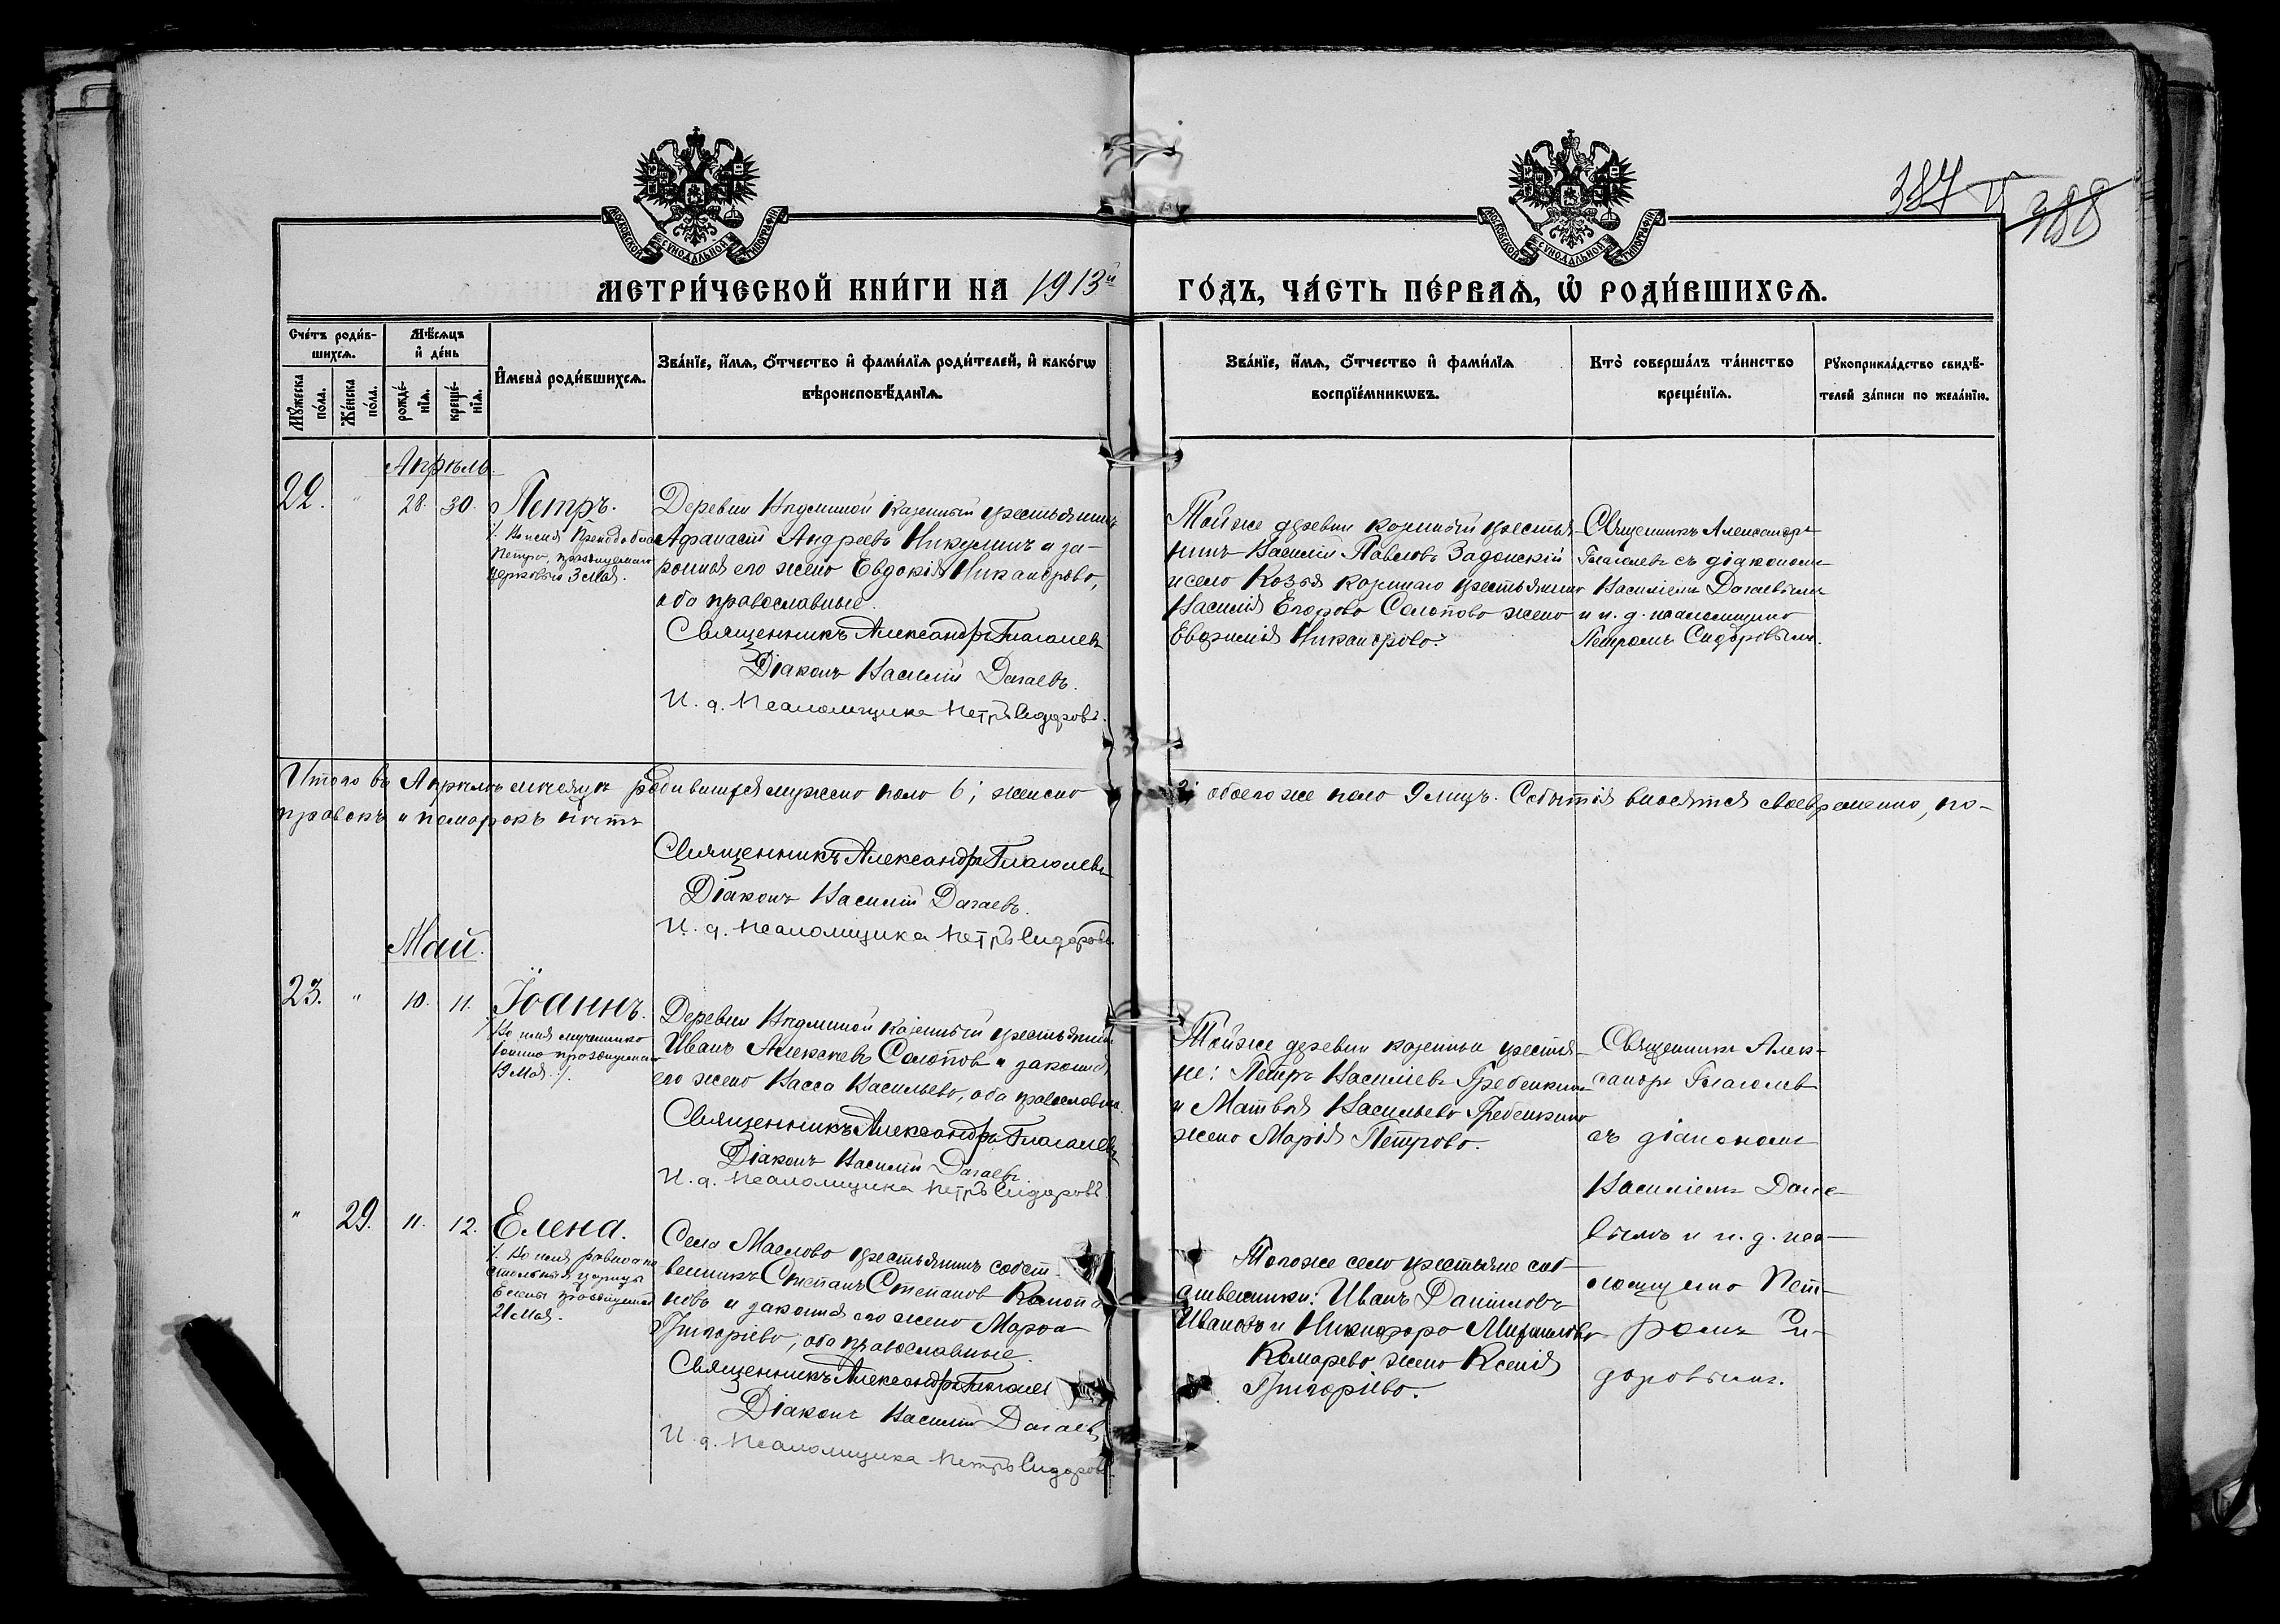 387 388
МОСКОВСКОЙ СѴНОДАЛЬНОЙ ТИПОГРАФІИ
МОСКОВСКОЙ СѴНОДАЛЬНОЙ ТИПОГРАФІИ
МЕТРИ́ЧЕСКОЙ КНИ́ГИ НА 1913й ГО́ДЪ, ЧА́СТЬ ПЕ́РВАѦ, Ѡ҆ РОДИ́ВШИХСѦ.
Сче́тъ роди́в-
шихсѧ.
Мѣ́сѧцъ
и҆ де́нь
Мꙋ́жеска по́ла.
Же́нска по́ла.
рожде́-
нїѧ.
креще́-
нїѧ.
И҆мена̀ роди́вшихсѧ.
Зва́нїе, и҆́мѧ, ѻ҆́тчество и҆ фами́лїѧ роди́телей, и҆ како́гѡ
вѣроисповѣ́данїѧ.
Зва́нїе, и҆́мѧ, ѻ҆́тчество и҆ фами́лїѧ
воспрїе́мникѡвъ.
Кто̀ соверша́лъ та́инство
креще́нїѧ.
Рꙋкоприкла́дство свидѣ́-
телей за́писи по жела́нїю.
Апрѣль
22. " 28. 30. Петръ.
Во имя Преподобна
Петра, празднуемаго
церковью 3 мая.
Деревни казенный крестьянинъ
Афанасій Андреевъ Никулинъ и за-
конная его жена Евдокія Никандрова,
оба православные.
Священникъ Александръ Глаголевъ
Діаконъ Василій Дагаевъ.
И. д. Псаломщика Петръ Сидоровъ.
Той же деревни казенный крестья-
нинъ Василій Павловъ Задонскій
и села Козья казеннаго крестьянина
Василія Егорова Солопова жена
Евфимія Никандрова.
Священникъ Александръ
Глаголевъ съ діакономъ
Василіемъ Дагаевымъ
и и. д. псаломщика
Петромъ Сидоровымъ.
Итого въ Апрѣлѣ мѣсяцѣ родившихся мужеска пола 6; женска 3; обоего же пола 9 лицъ. Событія вносятся своевременно, по-
правокъ и помарокъ нѣтъ
Священникъ Александръ Глаголевъ
Діаконъ Василій Дагаевъ.
И. д. Псаломщика Петръ Сидоровъ
Май.
23. " 10. 11. Іоаннъ.
Во имя мученика
Іоанна празднуемаго
19 Мая.
Деревни казенный крестьянинъ
Иванъ Алексѣевъ Солопов и законная
его жена Васса Васильева, оба православные.
Священникъ Александръ Глаголевъ
Діаконъ Василій Дагаевъ.
И. д. Псаломщика Петръ Сидоровъ.
Той же деревни казенные крестья-
не: Петръ Василіевъ Гребенкинъ
и Матвѣя Васильева Гребенкина
жена Марія Петрова.
Священникъ Алек-
сандръ Глаголев
съ діакономъ
Василіемъ Дагае-
вымъ и и. д. пса-
ломщика Пет-
ромъ Си-
доровымъ.
" 29. 11. 12. Елена.
Во имя равноапо
стольныя царицы
Елены празднуемой
21 Мая.
Села Маслова крестьянинъ собст-
венникъ Степанъ Степанов
и законная его жена Марфа
Григоріева, оба православные.
Священникъ Александръ Глаголев
Діаконъ Василій Дагаевъ
И. д. Псаломщика Петръ Сидоровъ.
Того же села крестьяне соб-
ственники: Иванъ Даниловъ
Ивановъ и Никифора Михаилова
Комарева жена Ксенія
Григоріева.